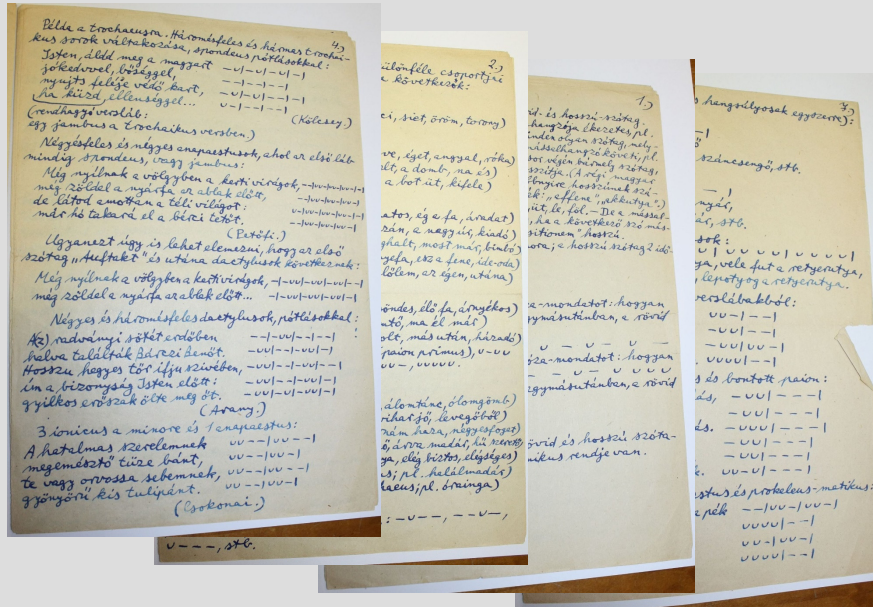 4.)
Példa a trochaeusra. Háromésfeles és hármas trochai-
kus sorok váltakozása, spondeus pótlásokkal:
Isten, áldd meg a magyart –∪|–∪|–∪|–|
jókedvvel, bőséggel, –∪|––|––|
nyujts feléje védő kart, ––|–∪|–∪|–|
ha küzd, ellenséggel... ∪–|––|––|
(Kölcsey.)
(rendhagyó versláb:
egy jambus a trochaikus versben.)
Négyésfeles és négyes anapaestusok, ahol az első láb
mindig spondeus, vagy jambus:
Még nyílnak a völgyben a kerti virágok,
még zöldel a nyárfa az ablak előtt,
de látod amottan a téli világot:
már hó takará el a bérci tetőt.
(Petőfi.)
Ugyanezt úgy is lehet elemezni, hogy az első
szótag „Auftakt” és utána dactylusok következnek:
Még nyílnak a völgyben a kerti virágok,
még zöldel a nyárfa az ablak előtt...
Négyes és háromésfeles dactylusok, pótlásokkal:
A(z) radványi sötét erdőben
halva találták Bárczi Benőt.
Hosszu hegyes tőr ifju szivében,
ím a bizonyság Isten előtt:
gyilkos erőszak ölte meg őt.
(Arany.)
3 ionicus a minore és 1 anapaestus:
A hatalmas szerelemnek ∪∪––|∪∪––|
megemésztő tüze bánt, ∪∪––|∪∪–|
te vagy orvossa sebemnek, ∪∪––|∪∪––|
gyönyörű kis tulipánt. ∪∪––|∪∪–|
(Csokonai.)
2.)
ülönféle csoportjai
a következők:
ci, siet, öröm, torony)
ve, éget, angyal, róka)
alt, a domb, na és)
a bot üt, kifele)
atos, ég a fa, áradat)
zán, a nagy úr, kiadó)
ghalt, most már, bimbó)
yefa, esz a fene, ide-oda)
lőlem, az égen, utána)
öndes, élő fa, árnyékos)
ntő, ma él már)
olt, más után, házadó)
paion primus), ∪–∪∪
∪∪–, ∪∪∪∪∪.
álomtánc, ólomgömb)
rihar jő, levegőből)
nám haza, négyesfogat)
ő, árva madár, hű szeretőm)
ya, elég biztos, elégséges)
us; pl. halálmadár)
haeus; pl. óraінga)
: –∪––, ––∪–,
∪–––, stb.
1.)
id- és hosszú-szótag.
hangzója ékezetes, pl.
inden olyan szótag, mely-
ássalhangzó követi, pl.
sor végén bármely szótag,
sszítja. (A régi magyar
öbnyire hosszúnak szá-
ék: „effene”, „akkutya”.)
út, le, föl. – De a mással-
, ha a következő szó más-
sitionem” hosszú.
ora; a hosszú szótag 2 idő-
za-mondatot: hogyan
gymásutánban, a rövid
óza-mondatot: hogyan
egymásutánban, a rövid
övid és hosszú szóta-
nikus rendje van.
7.)
s hangsúlyosak egyszerre):
száncsengő, stb.
nyár,
ár, stb.
sok:
ya, vele fut a retyerutya,
, lepotyog a retyerutya.
verslábakból:
∪∪–|––|
∪∪∪∪|––|
∪∪–|∪∪–|
∪∪∪∪|∪∪–|
s és bontott paion:
ás, –∪∪|–––|
–∪∪∪|–––|
ás. –∪∪|–––|
stus és prokeleus-matikus:
a pék ––|∪∪–|∪∪–|
∪∪∪∪|––|
∪∪–|∪∪–|
∪∪∪∪|––|